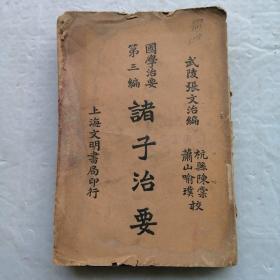 武陵張文治編
杭縣陳棠
蕭山喻璞
校
國學治要
第三編
諸子治要
上海文明書局印行